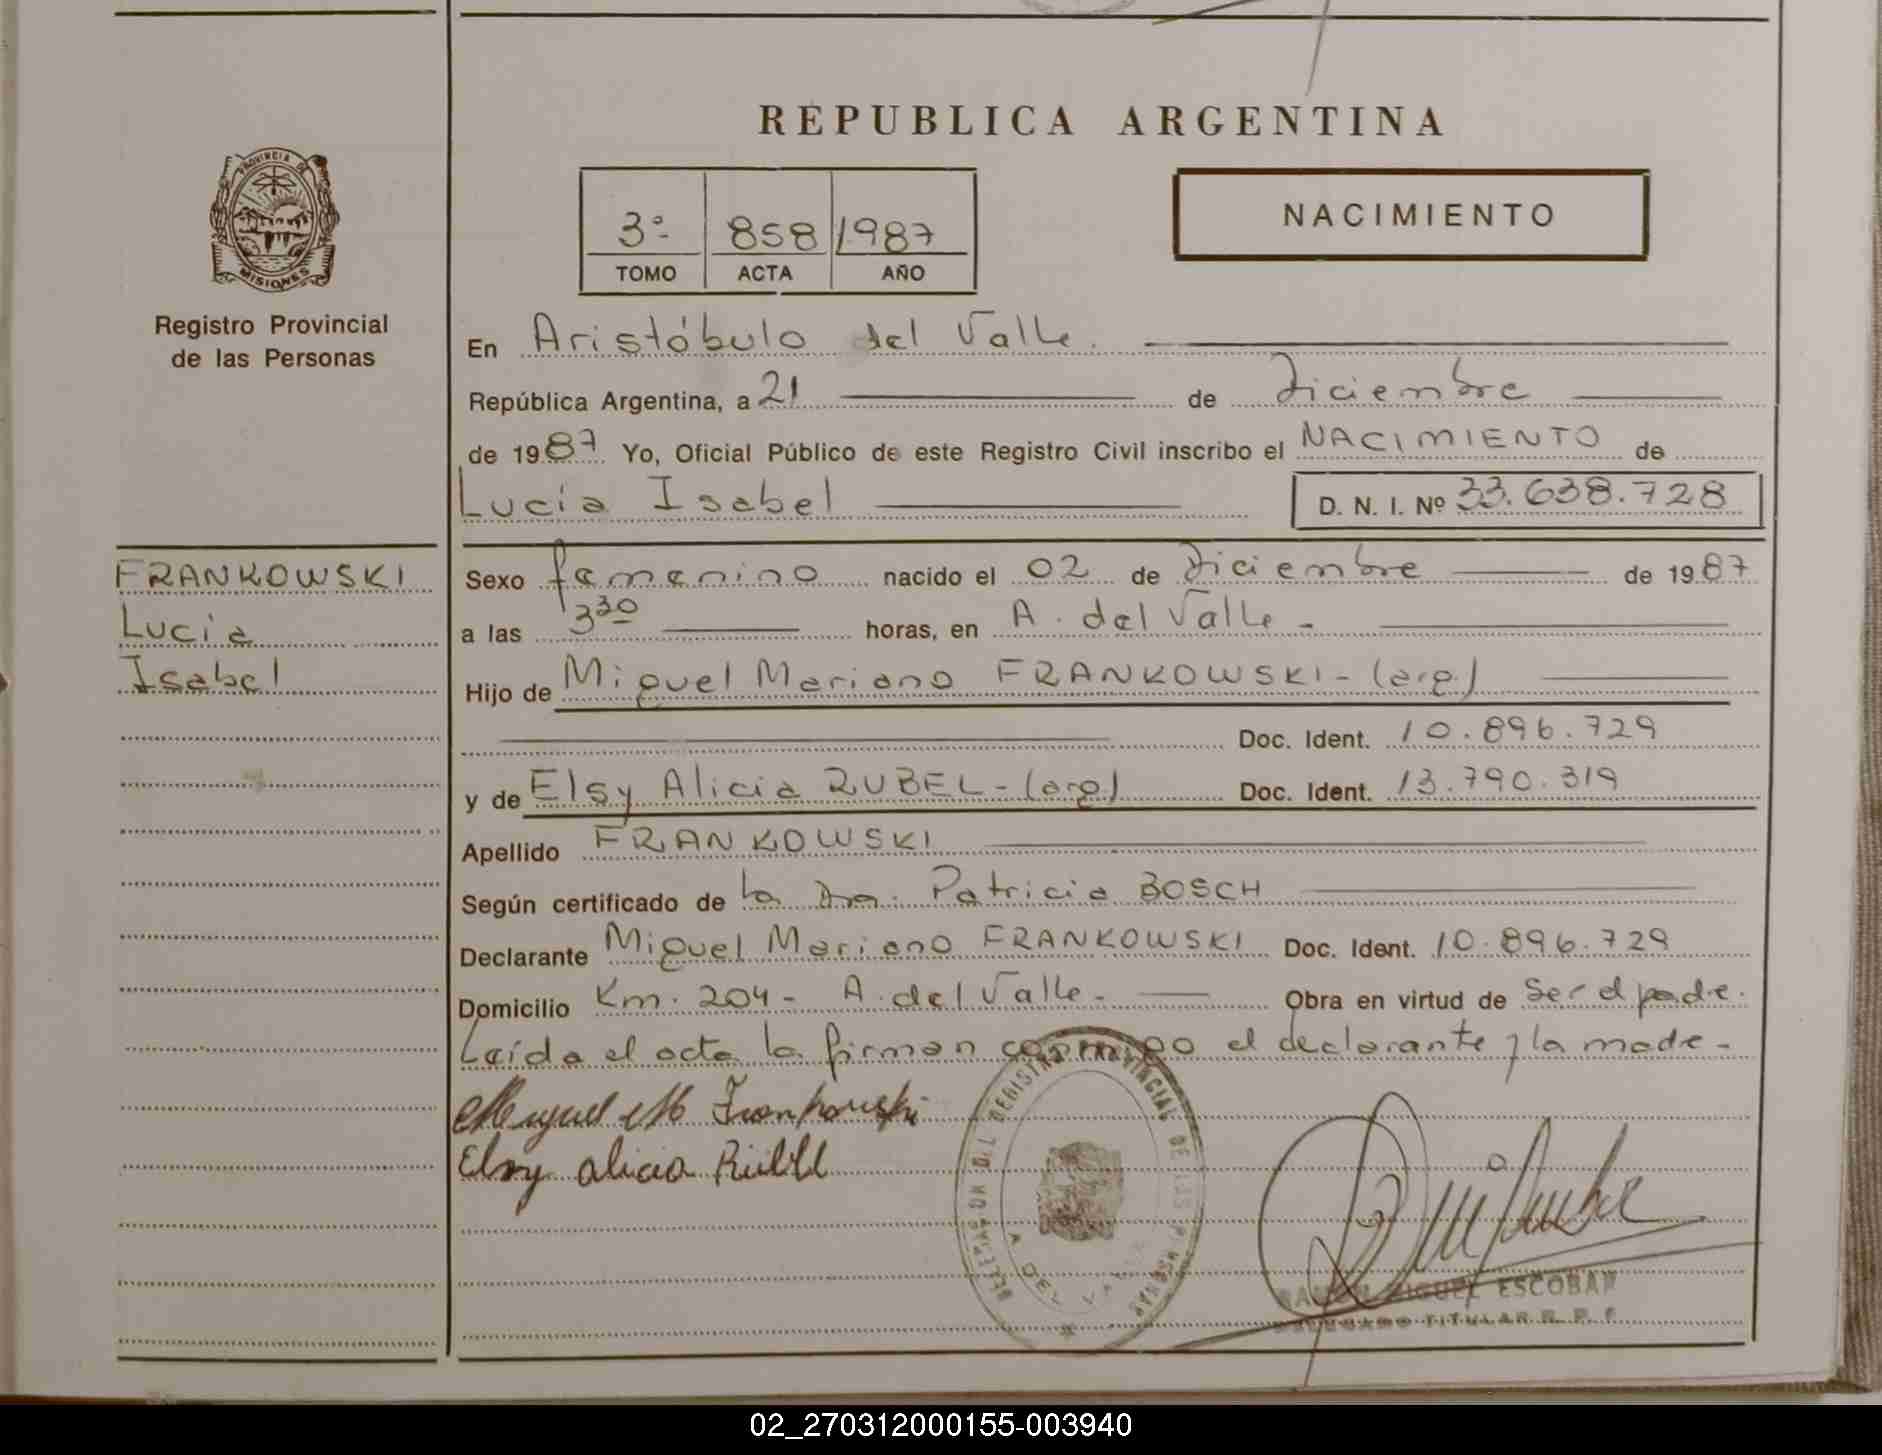 REPUBLICA ARGENTINA
PROVINCIA DE
MISIONES
Registro Provincial
de las Personas
3º 858 1987
TOMO ACTA AÑO
NACIMIENTO
En Aristóbulo del Valle.
República Argentina, a 21 de diciembre
de 1987 Yo, Oficial Público de este Registro Civil inscribo el NACIMIENTO de
Lucía Isabel D. N. I. Nº 33.638.728
FRANKOWSKI
Lucía
Isabel
Sexo femenino nacido el 02 de diciembre de 1987
a las 3 30 horas, en A. del Valle -
Hijo de Miguel Mariano FRANKOWSKI - (arg.)
Doc. Ident. 10.896.729
y de Elsy Alicia RUBEL - (arg.) Doc. Ident. 13.790.319
Apellido FRANKOWSKI
Según certificado de la Dra. Patricia BOSCH
Declarante Miguel Mariano FRANKOWSKI Doc. Ident. 10.896.729
Domicilio Km. 204 - A. del Valle - Obra en virtud de Ser el padre.
Leída el acta la firman conmigo el declarante y la madre -
Miguel M Frankowski
Elsy Alicia Rubel
REGISTRO PROVINCIAL DE LAS PERSONAS
A. DEL VALLE
RAMON MIGUEL ESCOBAR
DELEGADO TITULAR R. P. P.
02_270312000155-003940